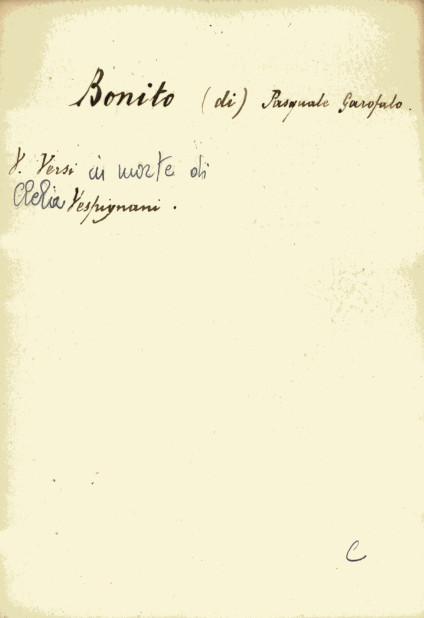 Bonito (di) Pasquale Garofalo.
V. Versi in morte di
Clelia Vespignani.
C